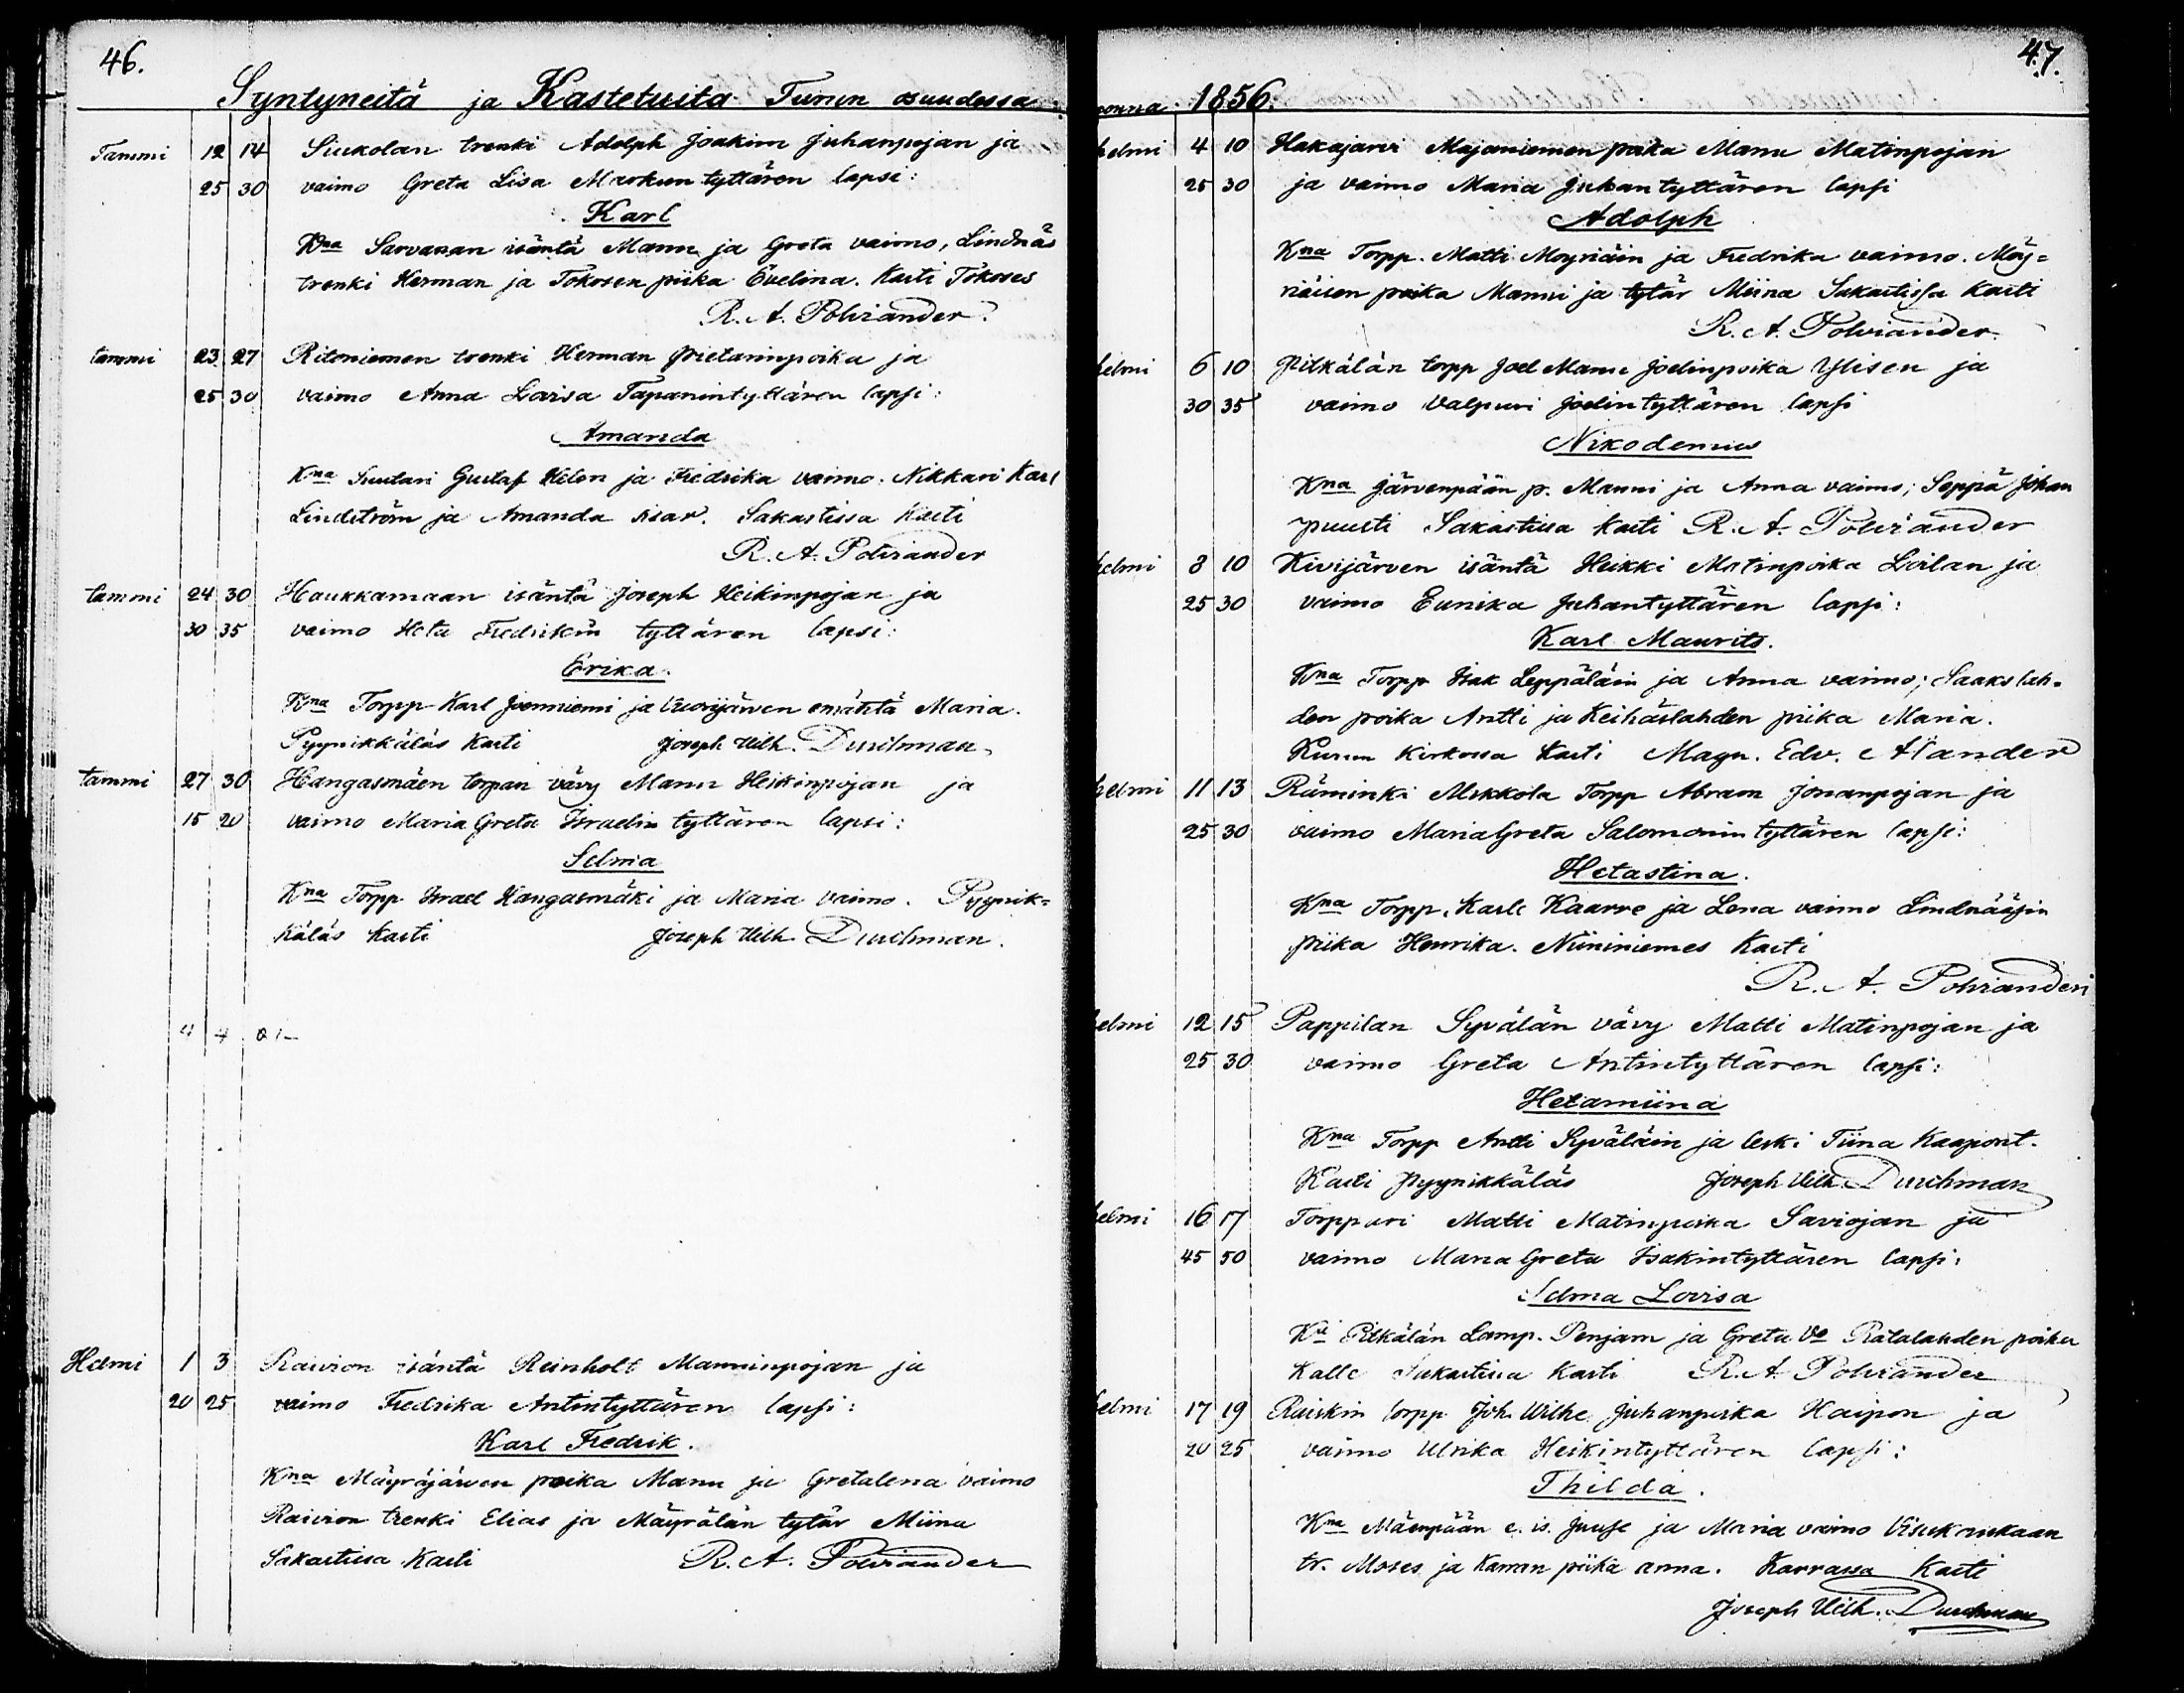 46.
Syntyneitä ja Kastetuita Turun osuudessa
Tammi 12 14 Siukolan trenki Adolph Joakim Juhanpojan ja
25 30 vaimo Greta Lisa Markuntyttären lapsi:
Karl
Kna Sarvanan isäntä Mannu ja Greta vaimo, Lindnäs
trenki Herman ja Tokosen piika Evelina. Kasti Tokoses
R. A. Polviander.
tammi 23 27 Ritoniemen trenki Herman Pietarinpoika ja
25 30 vaimo Anna Lovisa Tapanintyttären lapsi:
Amanda
Kna Suutari Gustaf Helen ja Fredrika vaimo. Nikkari Karl
Lindström ja Amanda sisar. Sakastissa Kasti
R. A. Polviander
tammi 24 30 Haukkamaan isäntä Joseph Heikinpojan ja
30 35 vaimo Heta Fredrikin tyttären lapsi:
Erika.
Kna Torpp Karl Joenniemi ja Vuorijärven emäntä Maria.
Pyynikkäläs Kasti Joseph Vilh. Durchman
tammi 27 30 Hangasmäen torpan vävy Mannu Heikinpojan ja
15 20 vaimo Maria Greta Israelin tyttären lapsi:
Selma
Kna Torpp Israel Hangasmäki ja Maria vaimo. Pyynik=
käläs Kasti Joseph Vilh. Durchman.
4 4
Helmi 1 3 Raivion isäntä Reinholt Manninpojan ja
20 25 vaimo Fredrika Antintyttären lapsi:
Karl Fredrik.
Kna Mäyräjärven poika Mannu ja Gretalena vaimo
Raivion trenki Elias ja Mäyrälän tytär Miina
Sakastissa Kasti R. A. Polviander
47.
vonna 1856.
helmi 4 10 Hakajarvi Majaniemen poika Manu Matinpojan
25 30 ja vaimo Maria Juhantyttären lapsi
Adolph
Kna Torpp. Matti Moyriäin ja Fredrika vaimo. Möy=
riäisen poika Manni ja tytär Miina Sakastissa Kasti
R. A. Polviander.
helmi 6 10 Pitkälän torpp Joel Mannu Joelinpoika Ylisen ja
30 35 vaimo Valpuri Joelintyttären lapsi
Nikodemus
Kna Järvenpään p. Manni ja Anna vaimo; Seppä Johan
puusti Sakastissa kasti R. A. Polviander
helmi 8 10 Kivijärven isäntä Heikki Matinpoika Loilan ja
25 30 vaimo Eunika Juhantyttären lapsi:
Karl Maurits.
Kna Torpp Isak Leppäläin ja Anna vaimo; Saakslah-
den poika Antti ja Keihäslahden piika Maria.
Kurun Kirkossa kasti Magn. Edv. Alander
helmi 11 13 Räminki Mikkola Torpp Abram Jonanpojan ja
25 30 vaimo Maria Greta Salomonin tyttären lapsi:
Hetastina.
Kna Torpp. Karle Kaarre ja Lena vaimo Lindnääsin
piika Henrika. Niininiemes Kasti
R. A. Polviander
helmi 12 15 Pappilan Syvälän vävy Matti Matinpojan ja
25 30 vaimo Greta Antintyttären lapsi:
Hetamiina
Kna Torpp Antti Syväläin ja leski Tiina Kaapont.
Kasti Pyynikkäläs Joseph Vilh. Durchman
helmi 16 17 Torppari Matti Matinpoika Saviojan ja
45 50 vaimo Maria Greta Isakintyttären lapsi:
Selma Lovisa
Kna Pitkälän Lamp. Penjam ja Greta Vo Ratalahden poika
Kalle Sakastissa Kasti R. A. Polviander
helmi 17 19 Raiskin torpp Joh. Wilhe Juhanpoika Haipon ja
20 25 vaimo Ulrika Heikintyttären lapsi:
Thilda.
Kna Mäenpään e. is. Juuse ja Maria vaimo
tr. Moses ja Karran piika anna. Karrassa Kasti
Joseph Vilh. Durchman